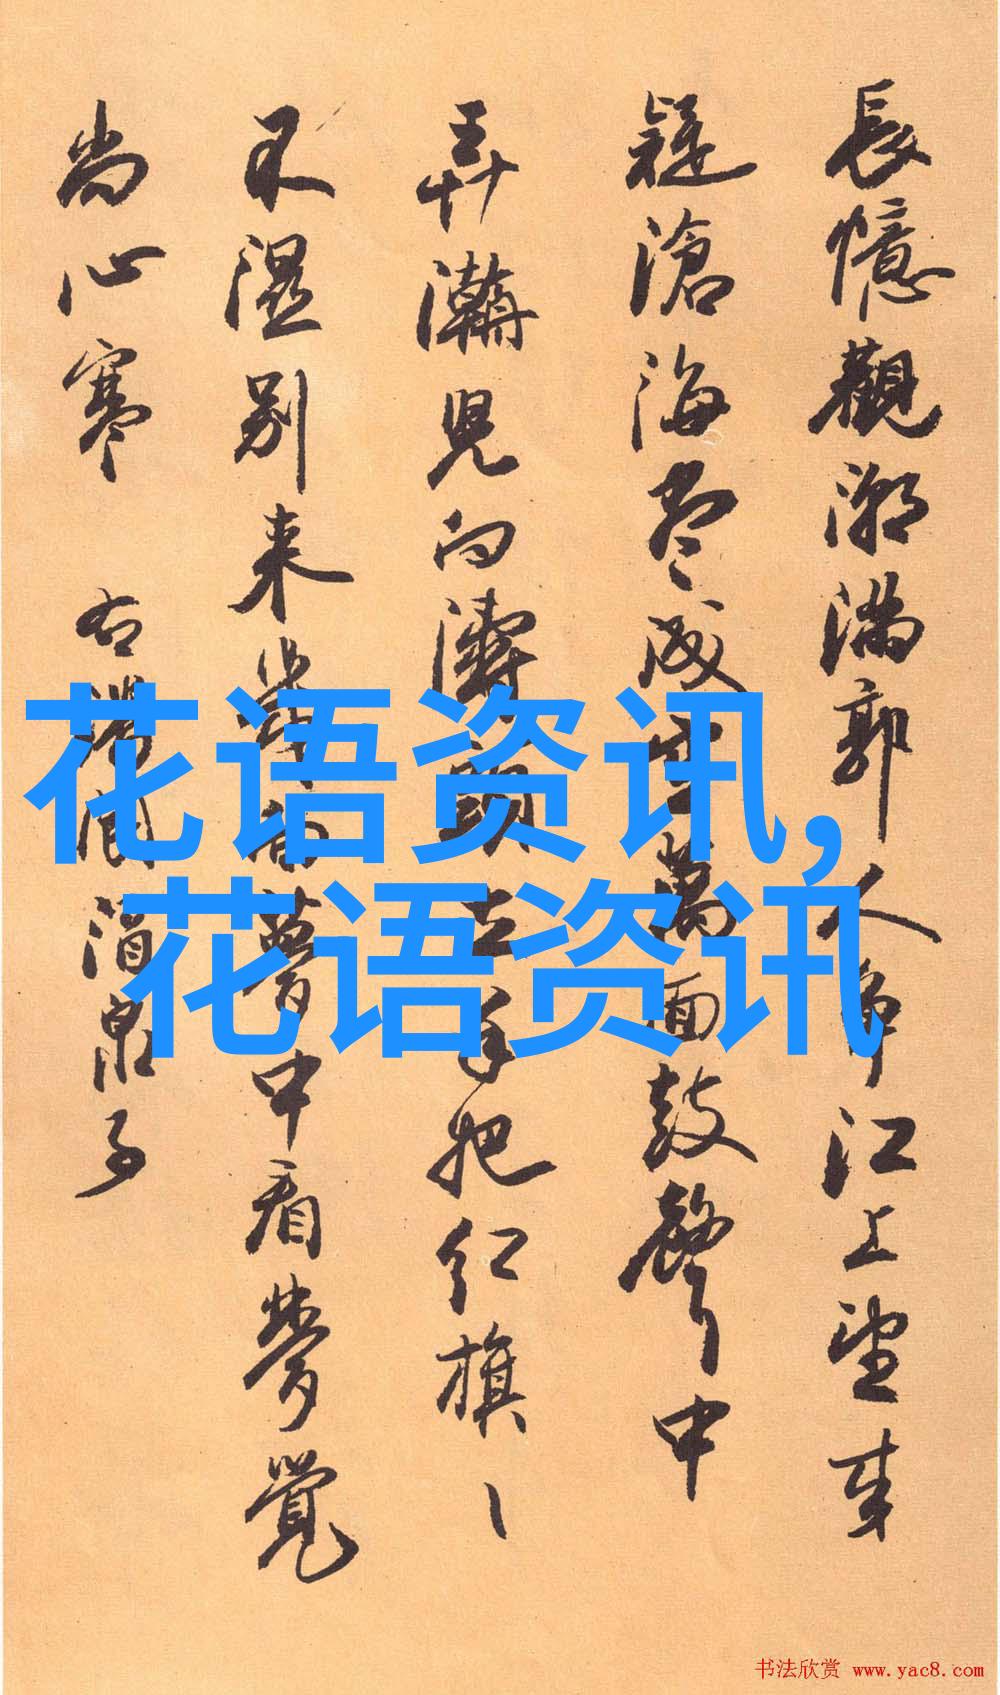 長憶觀潮滿郭人争江上望来
疑滄海尽成空萬面鼓聲中
弄潮兒向濤頭立手把红旗ヽ
不濕别来幾向夢中看夢覺
尚心寒 右潘阆酒泉子
花语资讯,
花语资讯
书法欣赏 www.yac8.com